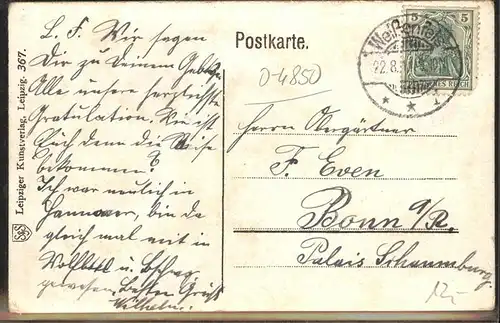 L. F. Wir sagen
Dir zu Deinem Gebtge
Alle unsere herzlichste
Gratulation. Wie ist
Euch denn die Reise
bekommen?
Ich war neulich in
Hannover, bin da
gleich mal mit in
u.
gewesen. Besten Gruß
Wilhelm.
Postkarte.
D-4850
Herrn Obergärtner
F. Even
Bonn a/R.
Palais Schaumburg.
12,-
5 5
REICH
Weißenfels
22.8.
Leipziger Kunstverlag, Leipzig. 367.